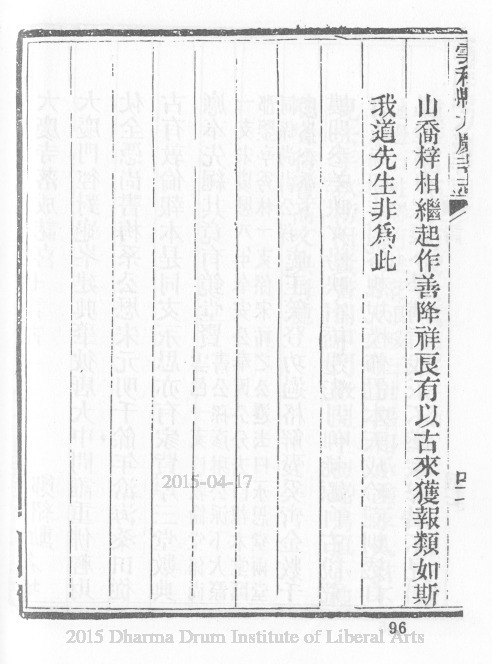 山喬梓相繼起作善降祥良有以古來獲報類如斯
我道先生非爲此
2015-04-17
96
2015 Dharma Drum Institute of Liberal Arts